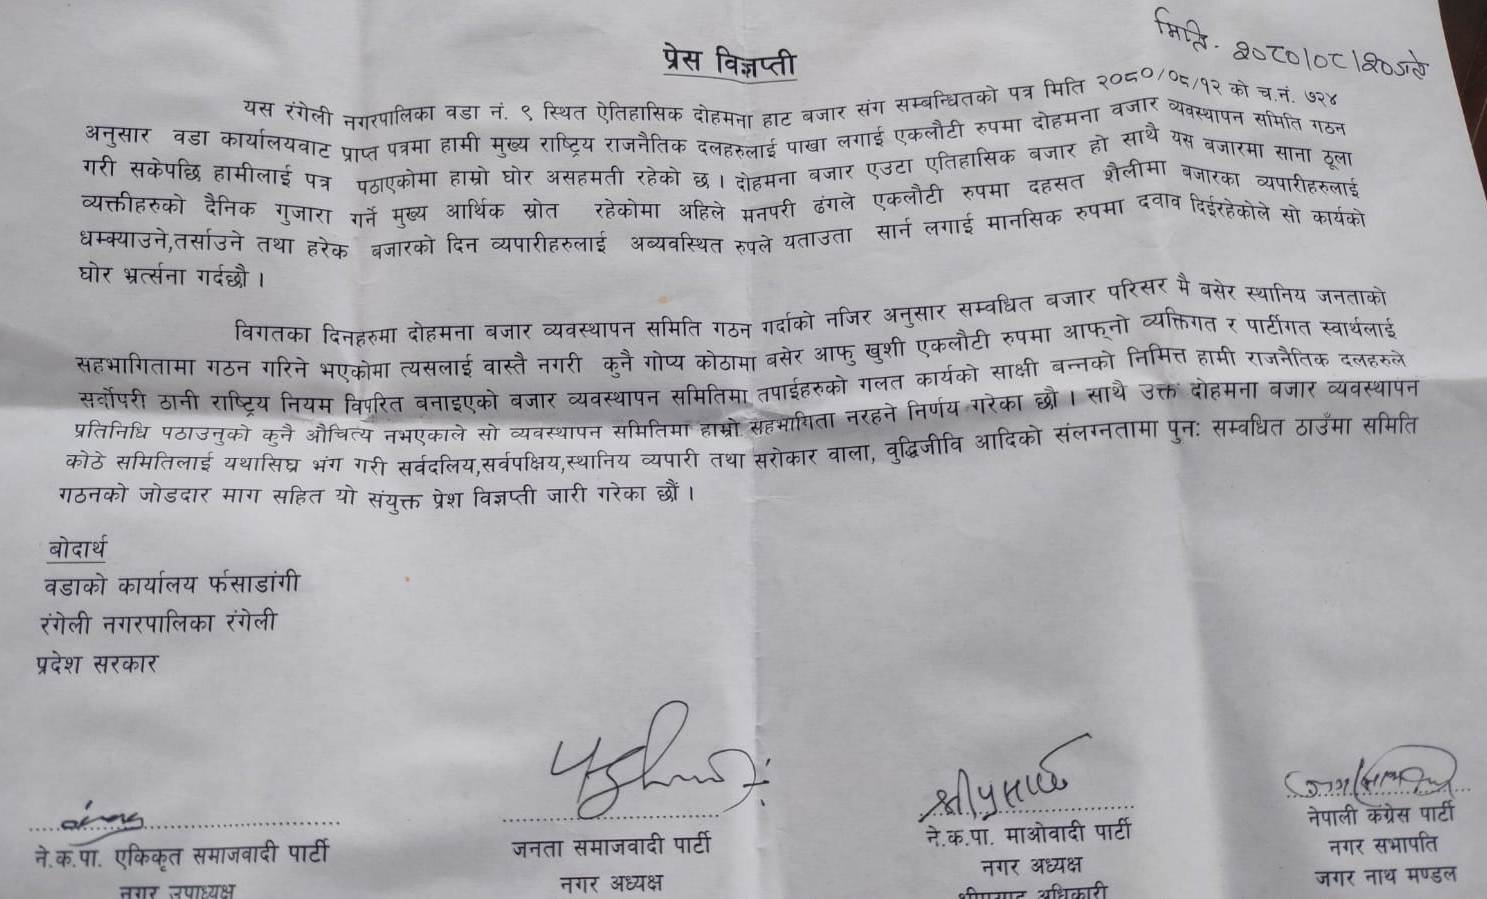 मिति. २०८०/०८/२० गते
प्रेस विज्ञप्ती
यस रंगेली नगरपालिका वडा नं. ९ स्थित ऐतिहासिक दोहमना हाट बजार संग सम्बन्धितको पत्र मिति २०८०/०८/१२ को च.नं. ७२४
अनुसार वडा कार्यालयवाट प्राप्त पत्रमा हामी मुख्य राष्ट्रिय राजनैतिक दलहरुलाई पाखा लगाई एकलौटी रुपमा दोहमना बजार व्यवस्थापन समिति गठन
गरी सकेपछि हामीलाई पत्र पठाएकोमा हाम्रो घोर असहमती रहेको छ । दोहमना बजार एउटा एतिहासिक बजार हो साथै यस बजारमा साना ठूला
व्यक्तीहरुको दैनिक गुजारा गर्ने मुख्य आर्थिक स्रोत रहेकोमा अहिले मनपरी ढंगले एकलौटी रुपमा दहसत शैलीमा बजारका व्यपारीहरुलाई
धम्क्याउने,तर्साउने तथा हरेक बजारको दिन व्यपारीहरुलाई अब्यवस्थित रुपले यताउता सार्न लगाई मानसिक रुपमा दवाव दिईरहेकोले सो कार्यको
घोर भ्रर्त्सना गर्दछौ ।
विगतका दिनहरुमा दोहमना बजार व्यवस्थापन समिति गठन गर्दाको नजिर अनुसार सम्वधित बजार परिसर मै बसेर स्थानिय जनताको
सहभागितामा गठन गरिने भएकोमा त्यसलाई वास्तै नगरी कुनै गोप्य कोठामा बसेर आफु खुशी एकलौटी रुपमा आफ्नो व्यक्तिगत र पार्टीगत स्वार्थलाई
सर्वोपरी ठानी राष्ट्रिय नियम विपरित बनाइएको बजार व्यवस्थापन समितिमा तपाईहरुको गलत कार्यको साक्षी बन्नको निमित्त हामी राजनैतिक दलहरुले
प्रतिनिधि पठाउनुको कुनै औचित्य नभएकाले सो व्यवस्थापन समितिमा हाम्रो सहभागिता नरहने निर्णय गरेका छौ । साथै उक्त दोहमना बजार व्यवस्थापन
कोठे समितिलाई यथासिघ्र भंग गरी सर्वदलिय,सर्वपक्षिय,स्थानिय व्यपारी तथा सरोकार वाला, वुद्धिजीवि आदिको संलग्नतामा पुनः सम्वधित ठाउँमा समिति
गठनको जोडदार माग सहित यो संयुक्त प्रेश विज्ञप्ती जारी गरेका छौं ।
बोदार्थ
वडाको कार्यालय र्फसाडांगी
रंगेली नगरपालिका रंगेली
प्रदेश सरकार
श्रीप्रसाद
ने.क.पा. एकिकृत समाजवादी पार्टी
नगर उपाध्यक्ष
जनता समाजवादी पार्टी
नगर अध्यक्ष
ने.क.पा. माओवादी पार्टी
नगर अध्यक्ष
अधिकारी
नेपाली कंग्रेस पार्टी
नगर सभापति
जगर नाथ मण्डल